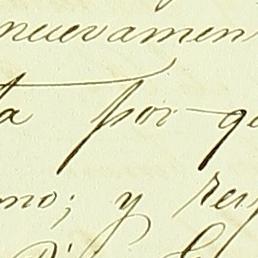 nuevamen
ta por qu
mo; y rey